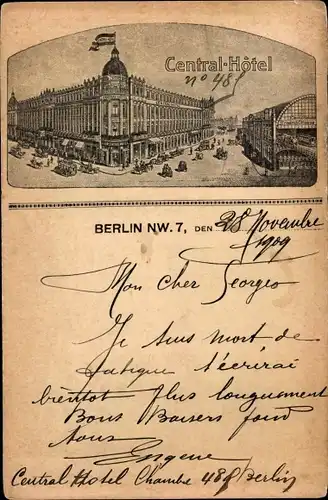 Central-Hôtel
n° 48 f
BERLIN NW. 7, DEN 28 Novembre
1909
Mon cher Georges
Je suis mort de
fatigue t'écrirai
bientôt plus longuement
Bons Baisers pour
tous
Eugene
Central Hotel Chambe 48 f Berlin